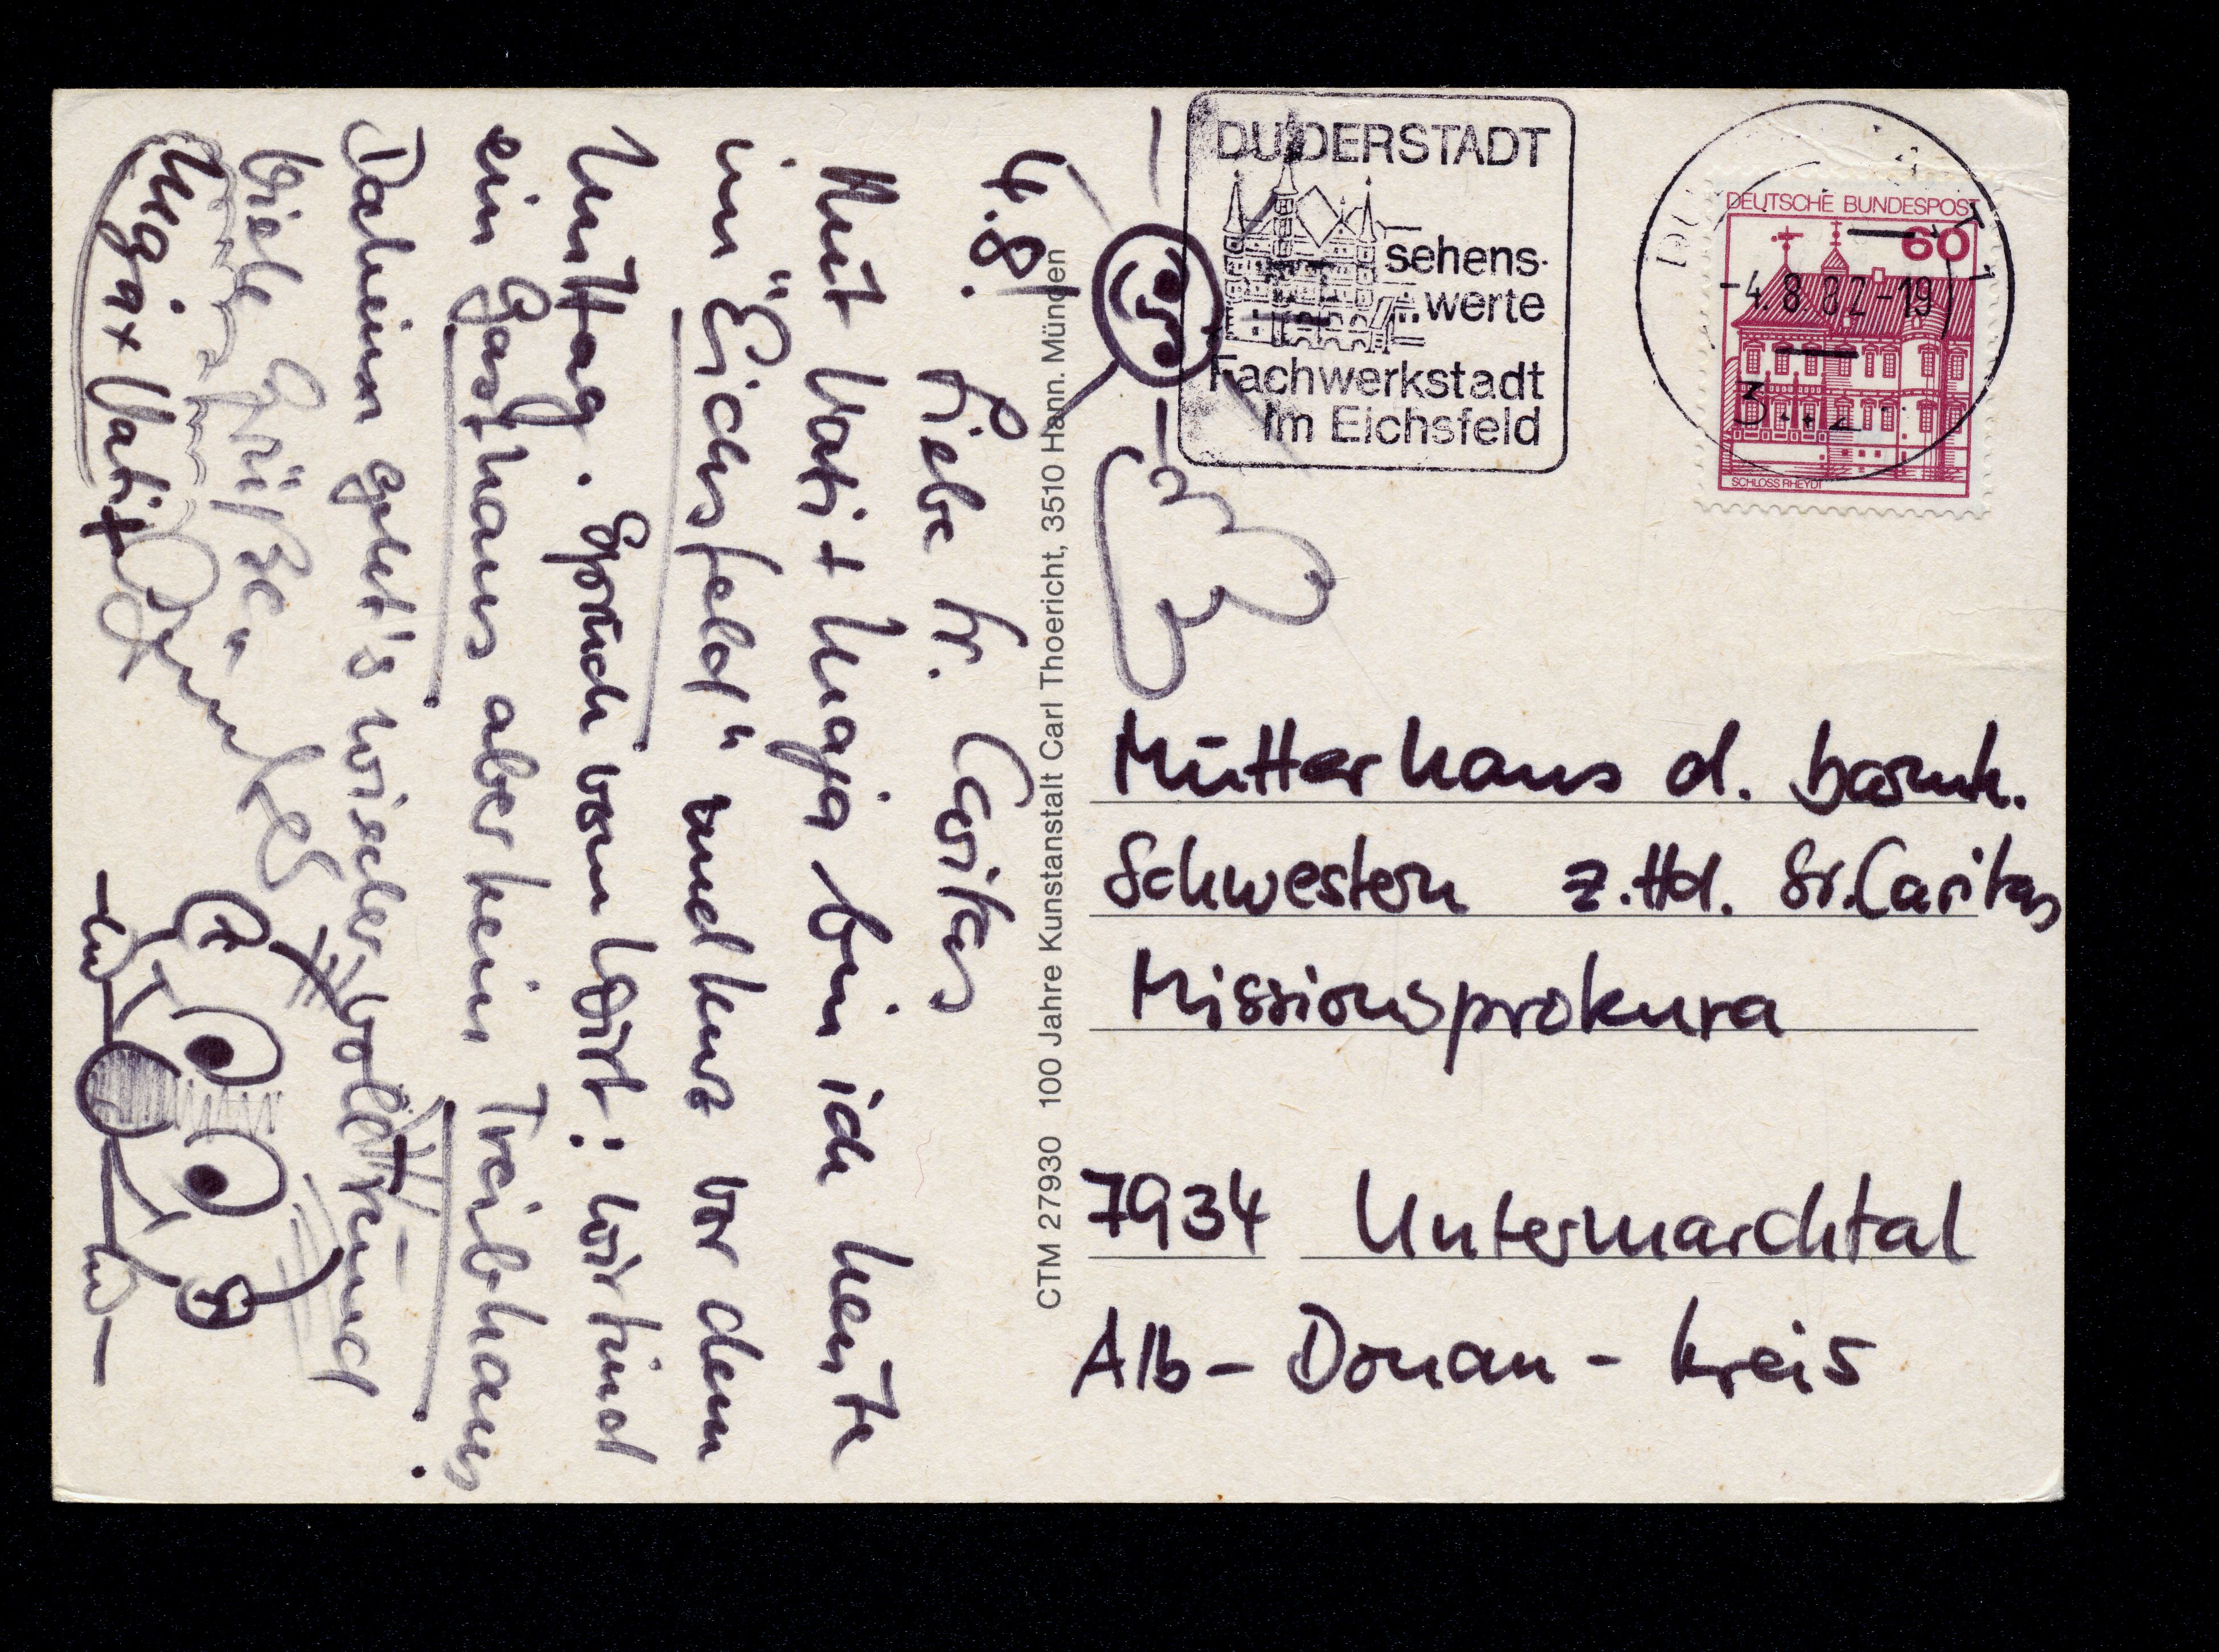 4.8.
Liebe Sr. Caritas
Mit Vati + Maja bin ich heute
im "Eichsfeld" und kurz vor dem
Mittag. Spruch vom Wirt: Wir sind
ein Gasthaus aber kein Treibhaus.
Daheim geht's wieder bald rund
Viele Grüße
Maja + Vati +
DUDERSTADT
sehens-
werte
Fachwerkstadt
im Eichsfeld
DEUTSCHE BUNDESPOST
60
-4.8.82-19
SCHLOSS RHEYDT
CTM 27930 100 Jahre Kunstanstalt Carl Thoericht, 3510 Hann. Münden
Mütterhaus d. barmh.
Schwestern z.Hd. Sr. Caritas
Missionsprokura
7934 Untermarchtal
Alb-Donau-Kreis